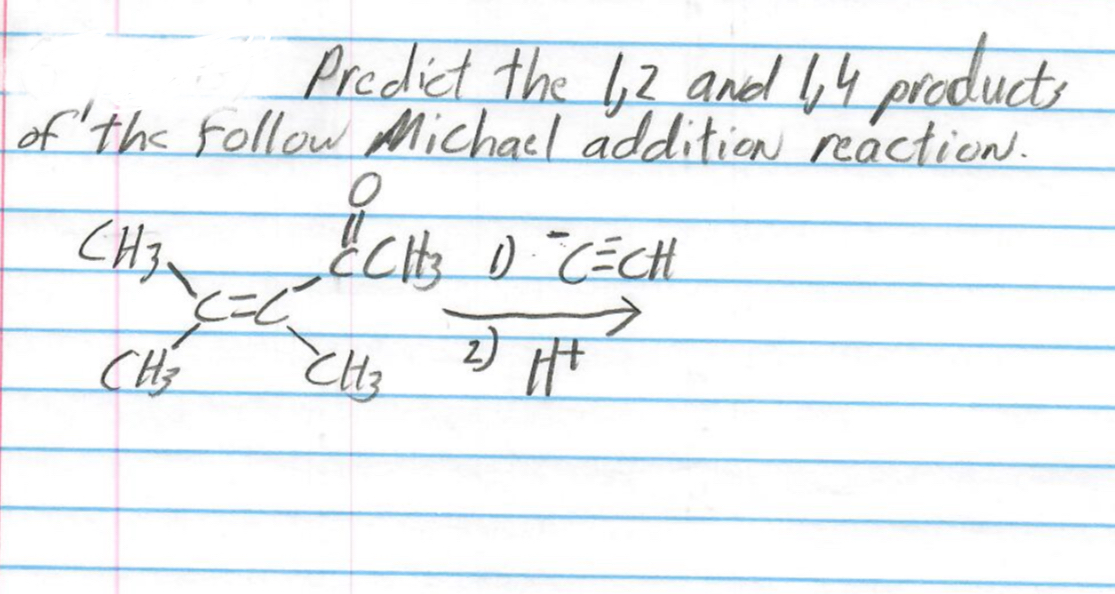 Predict the 1,2 and 1,4 products
of the follow Michael addition reaction.
O
CH3 CCH3 1) ⁻C≡CH
C=C
CH3 CH3 2) H+